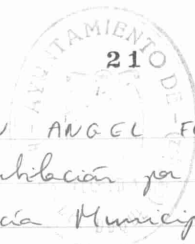 AYUNTAMIENTO DE
21
ANGEL
jubilación por
Municip